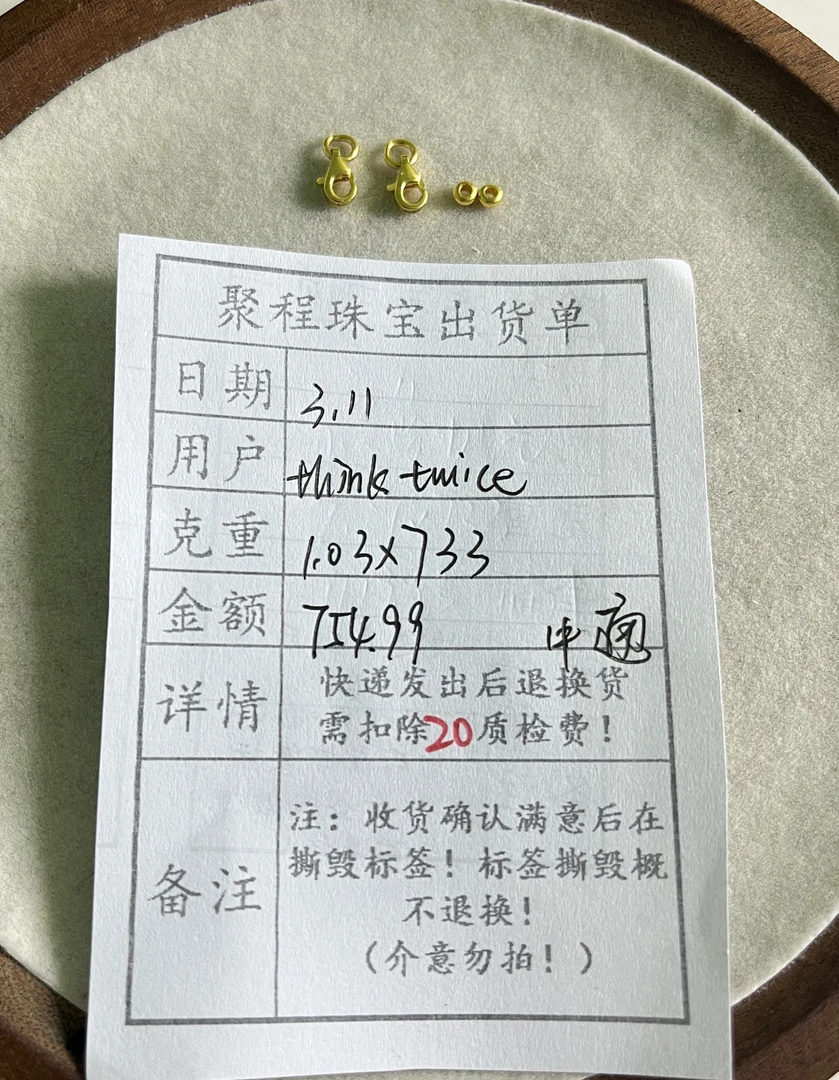 聚程珠宝出货单
日期 3.11
用户 think twice
克重 1.03×733
金额 754.99 中通
详情 快递发出后退换货
需扣除20质检费！
备注 注：收货确认满意后在
撕毁标签！标签撕毁概
不退换！
（介意勿拍！）